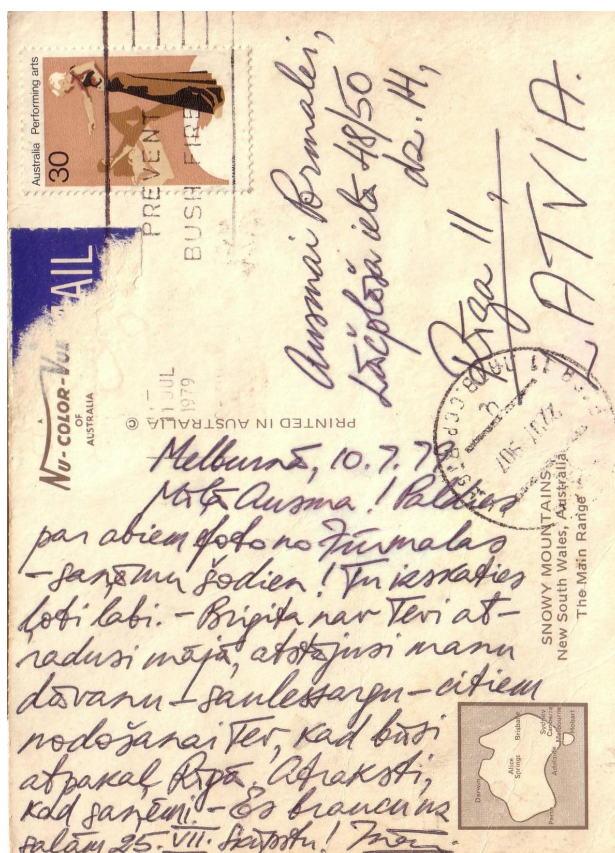 Australia Performing arts
30
PREVENT
BUSH FIRE
AIL
NU-COLOR-VUE
OF
AUSTRALIA
©
JUL
1979
PRINTED IN AUSTRALIA
Ausmai Pormalei,
Lāčplēša ielā 48/50
dz. 14,
Rīga 11,
LATVIA.
SNOWY MOUNTAINS
New South Wales, Australia
The Main Range
Darwin
Alice
Springs
Brisbane
Sydney
Canberra
Melbourne
Adelaide
Hobart
Perth
Melburnā, 10.7.79
Mīļā Ausma! Paldies
par abiem foto no Jūrmalas
- saņēmu šodien! Tu izskaties
ļoti labi. - Brigita nav Tevi at-
radusi mājā, atstājusi manu
dāvanu - saulessargu - citiem
nodošanai Tev, kad būsi
atpakaļ Rīgā. Atraksti,
kad saņēmi. - Es braucu uz
salām 25. VII. Skūpstu!